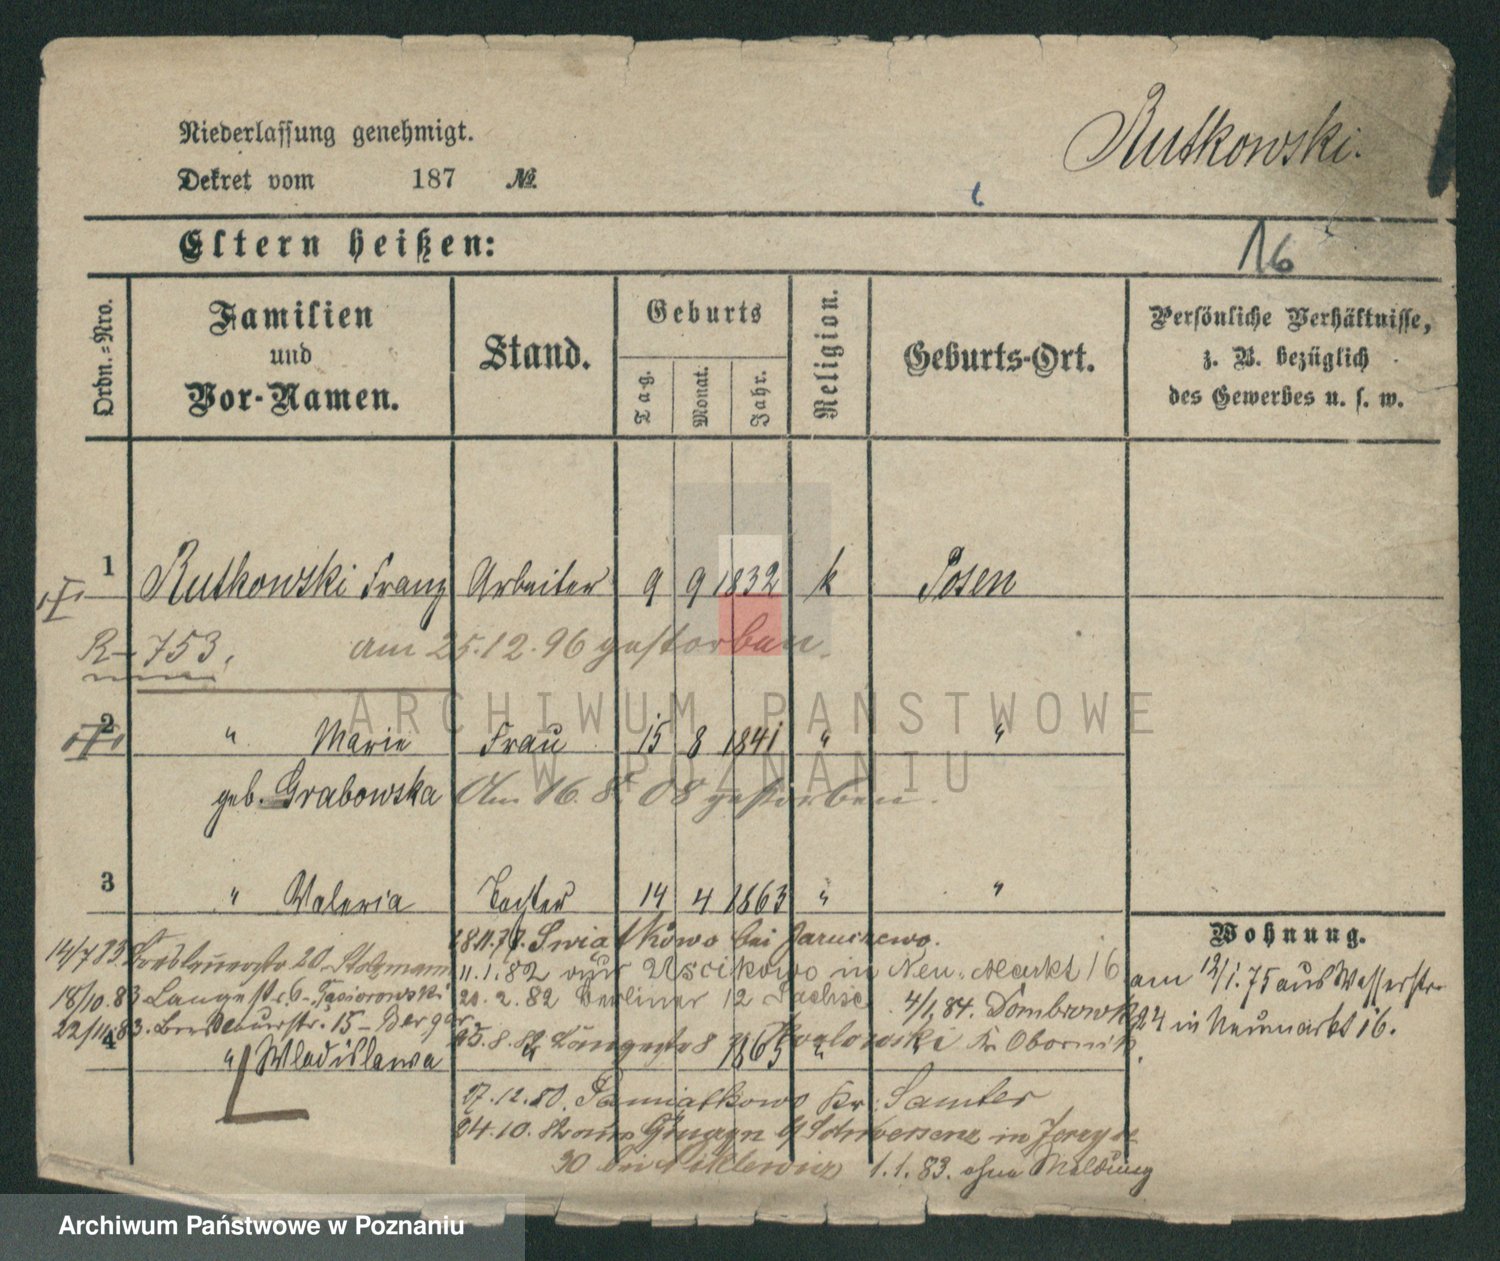 Rutkowski.
Niederlassung genehmigt.
Dekret vom 187 №.
Eltern heißen:
16
Ordn.=Nro.
Familien
und
Vor-Namen.
Stand.
Geburts
Tag.
Monat.
Jahr.
Religion.
Geburts-Ort.
Persönliche Verhältnisse,
z. B. bezüglich
des Gewerbes u. s. w.
1 Rutkowski Franz Arbeiter 9 9 1832 k Posen
R 753. am 25.12.96 gestorben.
2 " Marie Frau 15 8 1841 " "
geb. Grabowska Am 16. 8. 08 gestorben.
3 " Valeria Tochter 14 4 1863 " "
Wohnung.
am 12/1.75 aus Wasserstr.
24 in Neumarkt 16.
14/7 83 20 Stolzmann
18/10.83 Langestr. 6 - Gasiorowski
22/11.83. 15 - Berger
18.11.77. bei
11.1.82 in Neu. Markt 16
20.2.82 Berliner 12 4/1.84. Dombrowk
25.8.82 Langestr 8 Kr Obornik.
4 " Wladislawa " 1865 "
27.12.80. Pamiatkowo Kr. Samter
24.10. 82 aus in
30 bei 1.1.83. ohne Meldung
ARCHIWUM PAŃSTWOWE
W POZNANIU
Archiwum Państwowe w Poznaniu